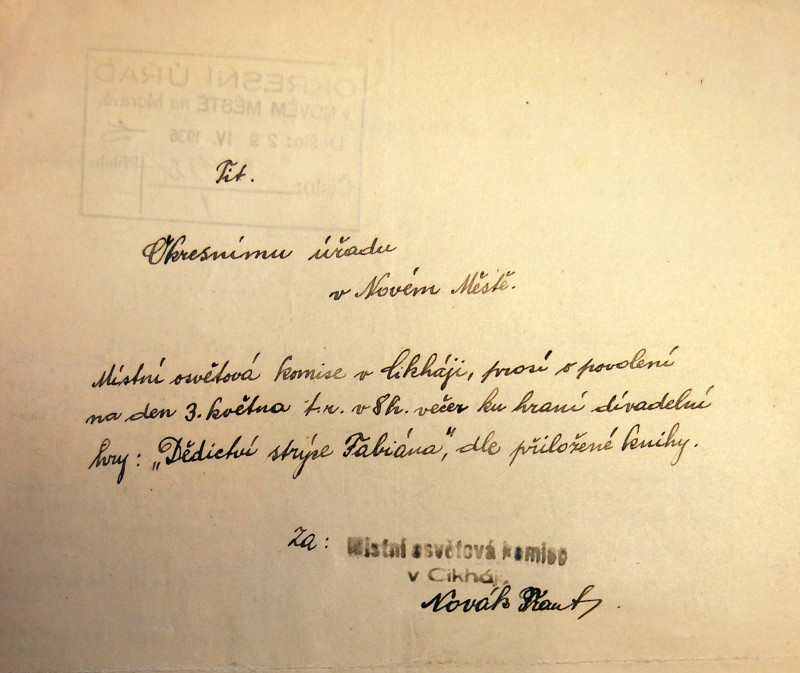 OKRESNÍ ÚŘAD
v NOVÉM MĚSTĚ na Moravě
Došlo: 29. IV. 1936
Číslo:
Příloh
Tit.
Okresnímu úřadu
v Novém Městě.
Místní osvětová komise v Cikháji, prosí o povolení
na den 3. května t.r. v 8h. večer ku hraní divadelní
hry: „Dědictví strýce Fabiána“, dle přiložené knihy.
Za: Místní osvětová komise
v Cikháji.
Novák